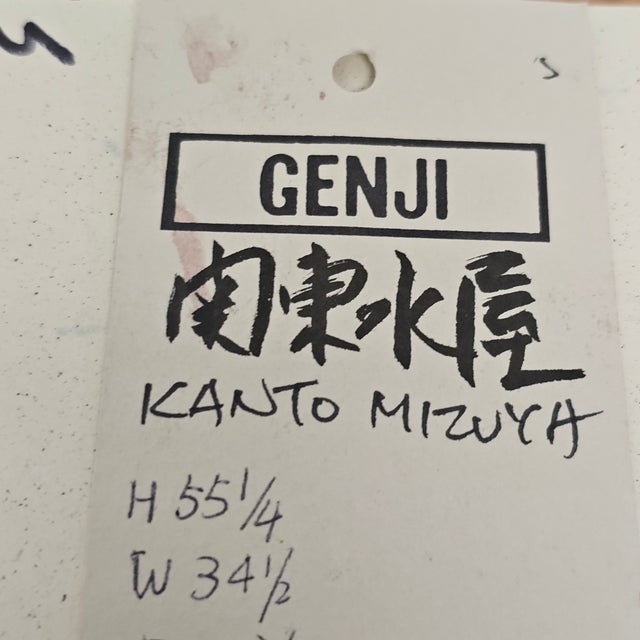 GENJI
関東水屋
KANTO MIZUYA
H 55 1/4
W 34 1/2